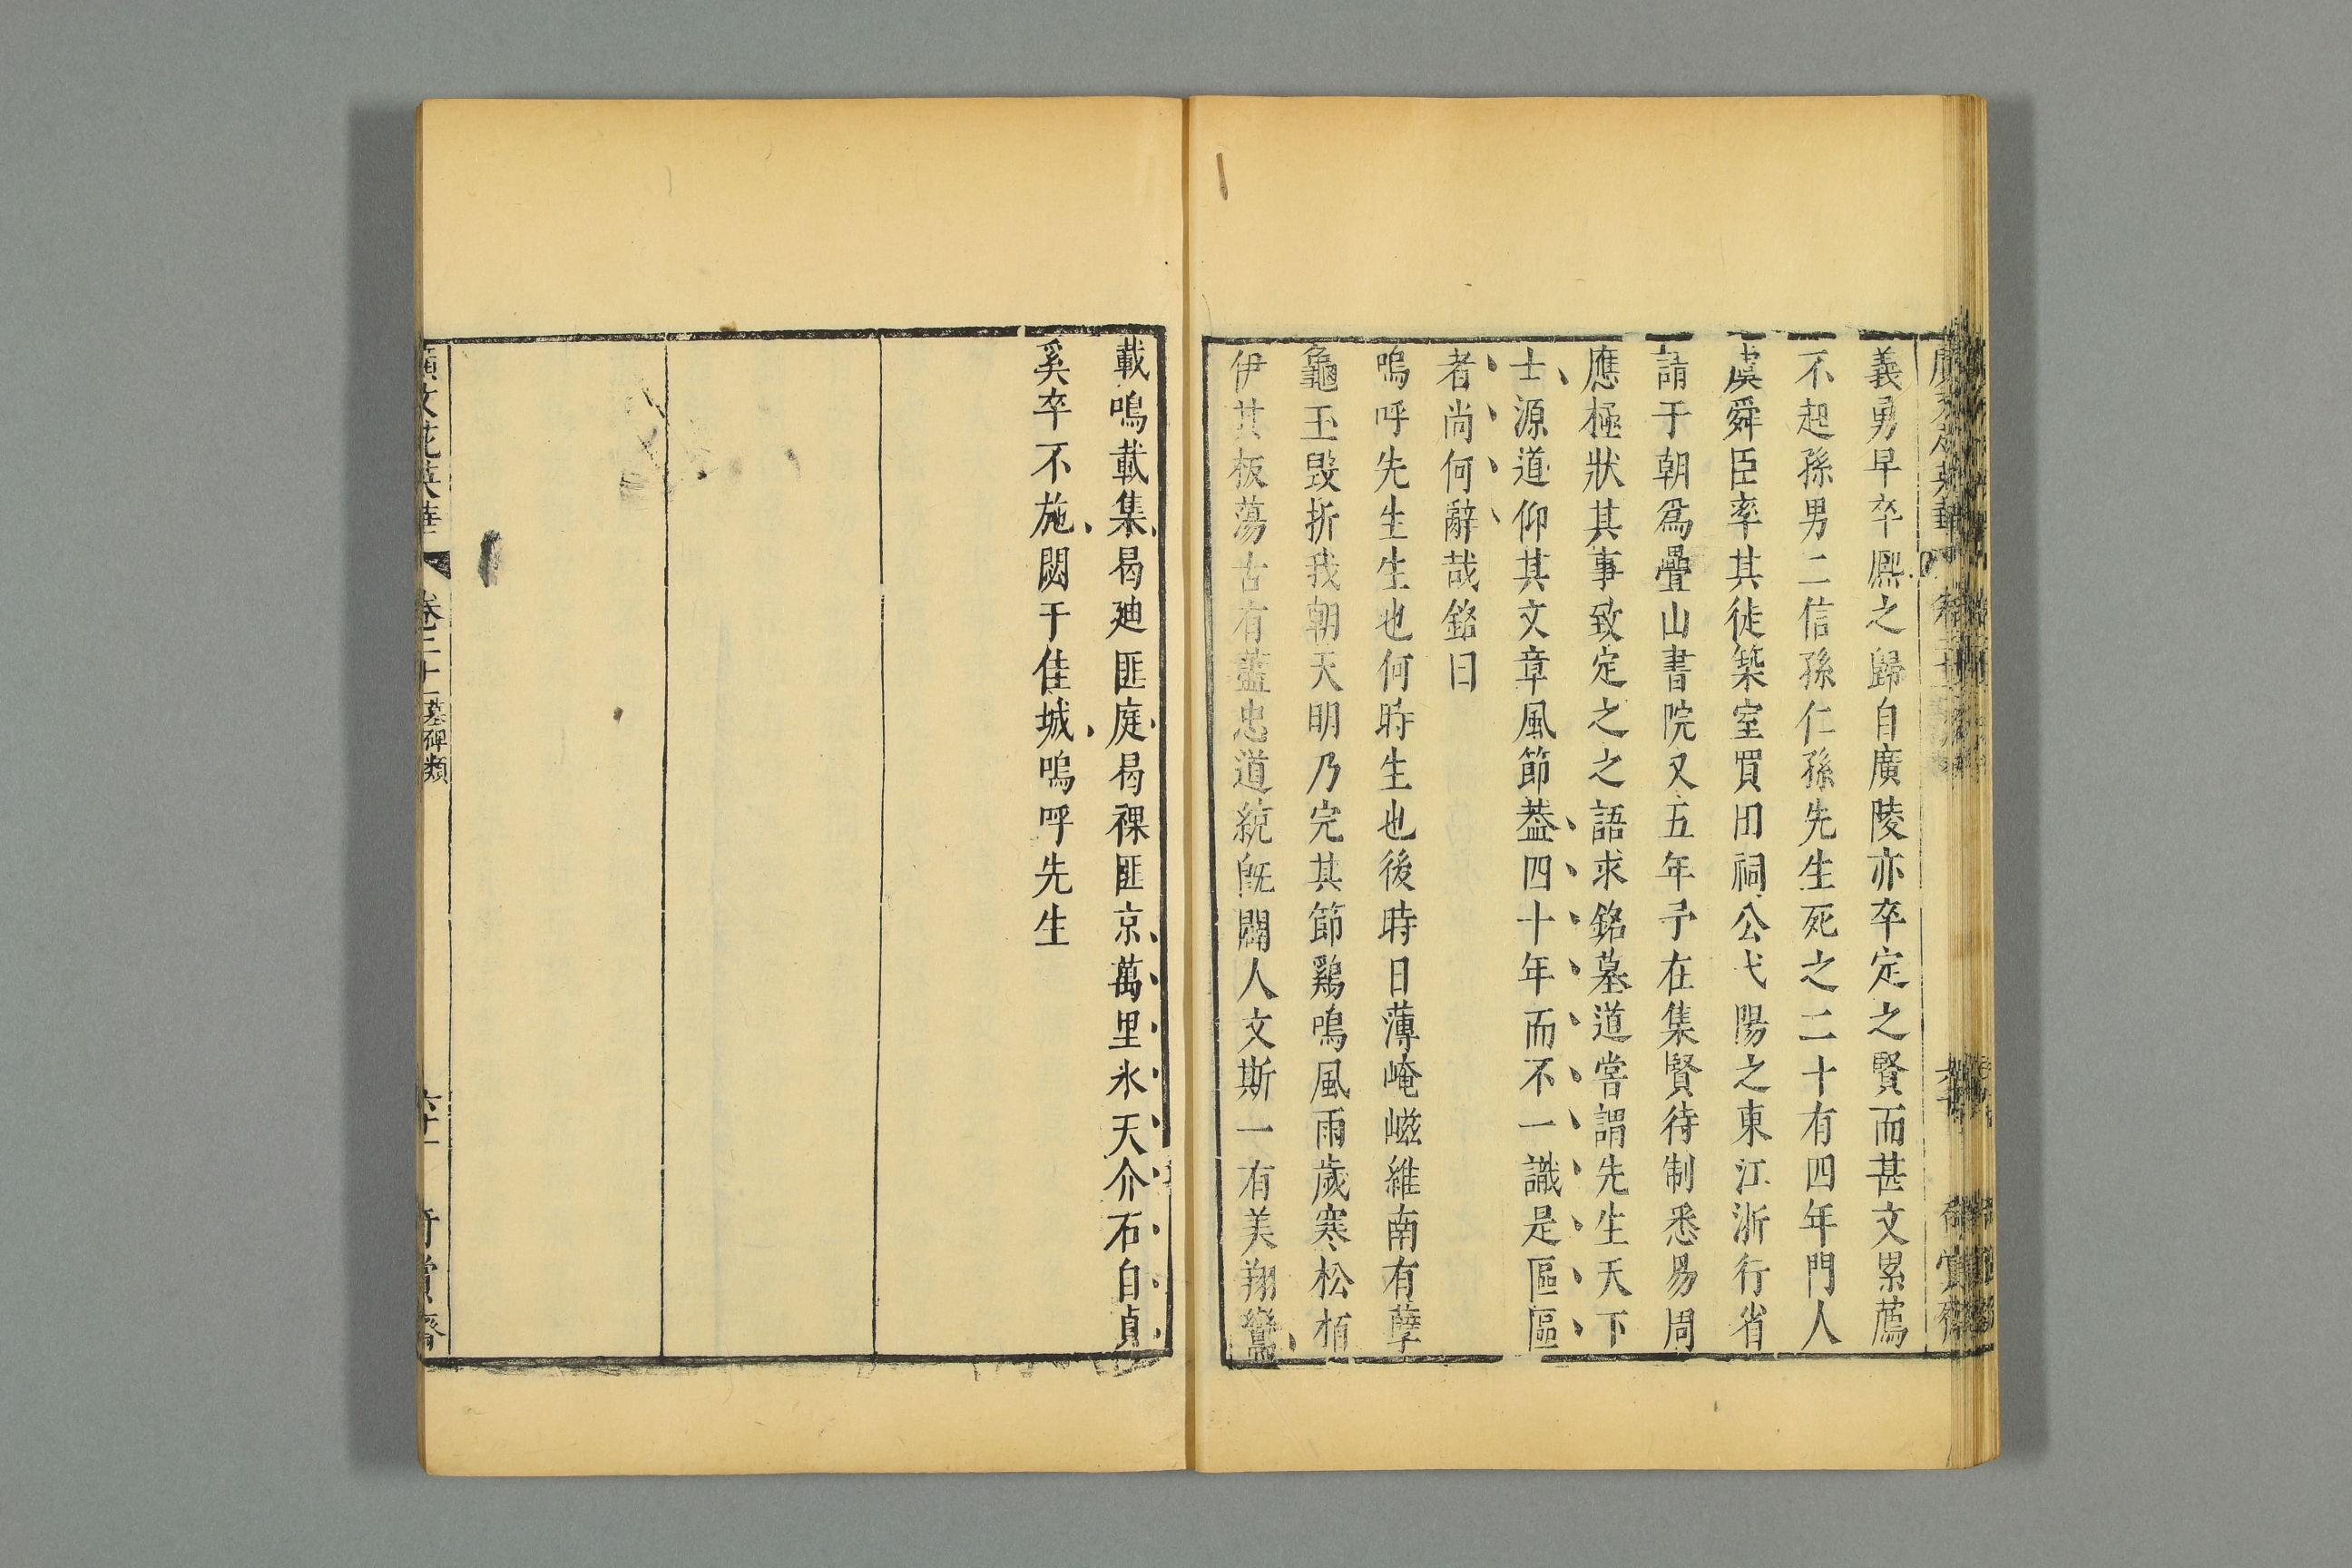 義勇早卒熈之歸自廣陵亦卒定之賢而甚文累薦
不起孫男二信孫仁孫先生死之二十有四年門人
虞舜臣率其徒築室買田祠公弋陽之東江浙行省
請于朝爲疊山書院又五年予在集賢待制悉昜周
應極狀其事致定之之語求銘墓道嘗謂先生天下
士源道仰其文章風節葢四十年而不一識是區區
者尚何辭哉銘曰
嗚呼先生生也何時生也後時日薄崦嵫維南有孽
龜玉毀折我朝天明乃完其節鷄鳴風雨歲寒松栢
伊其板蕩古有藎忠道統旣闢人文斯一有美翔鸞
載鳴載集曷廸匪庭曷祼匪京萬里氷天介石自貞
奚卒不施閟于佳城嗚呼先生
廣文苑英華 卷二十 墓碑類 六十一 奇賞齋